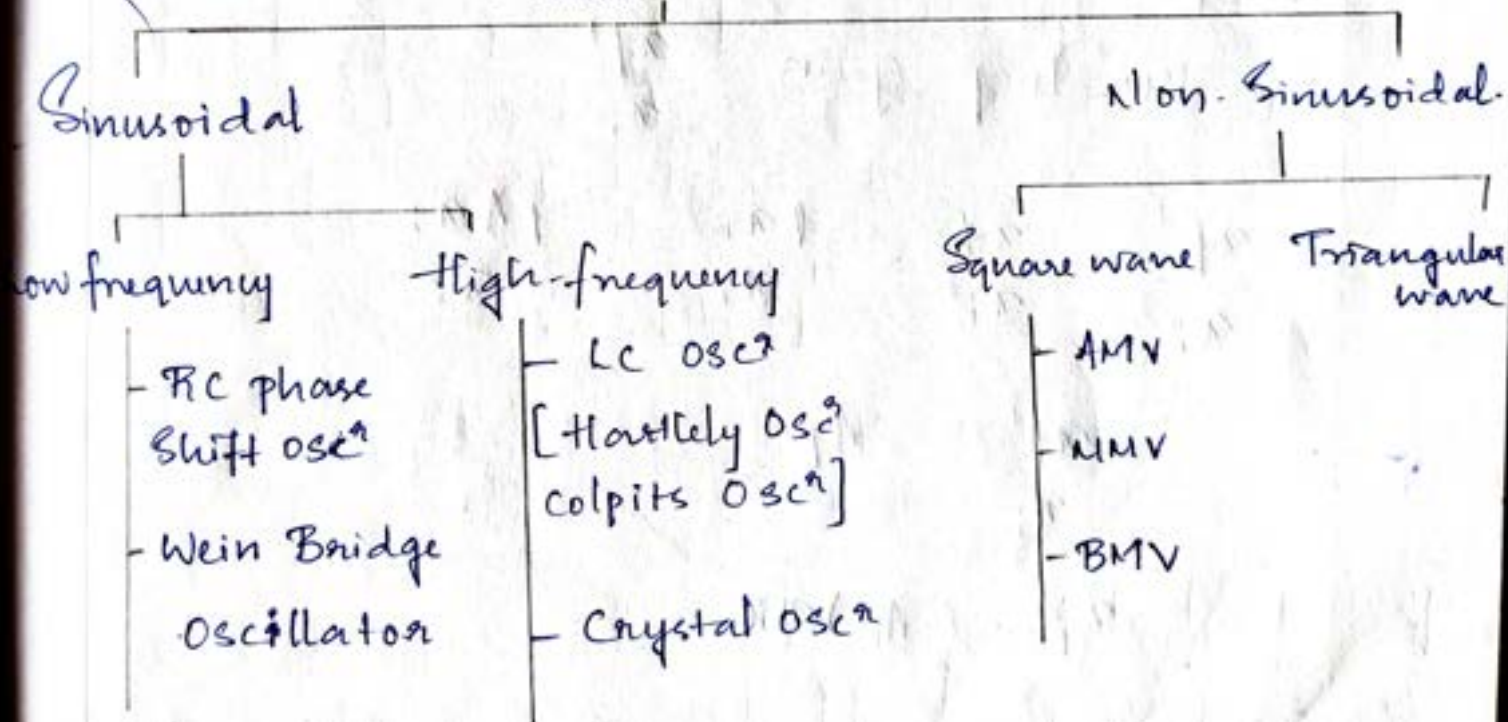 Sinusoidal
Non-Sinusoidal.
Low frequency
High-frequency
Square wave
Triangular
wave
- RC phase
Shift oscr
- Wein Bridge
Oscillator
- LC oscr
[Hartlely Oscr
Colpits Oscr]
- Crystal oscr
- AMV
- MMV
- BMV